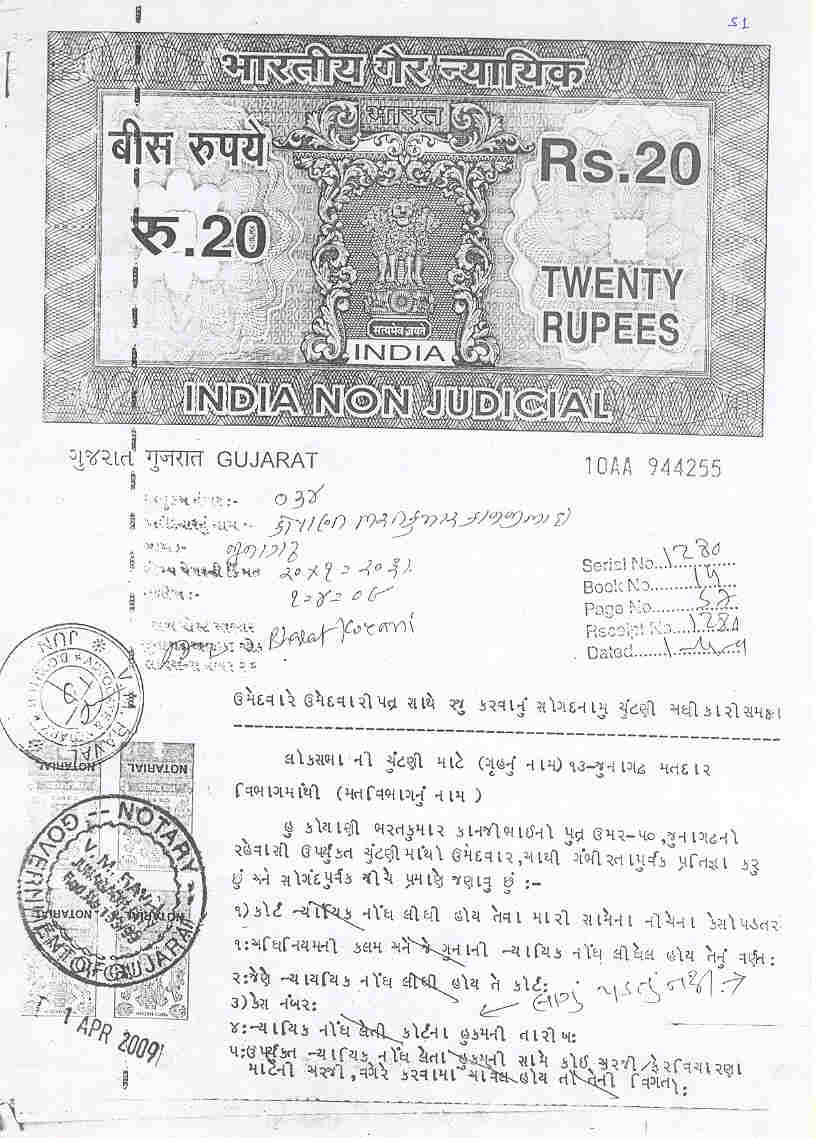 51
भारतीय गैर न्यायिक
भारत
बीस रुपये
Rs.20
रु.20
TWENTY
RUPEES
सत्यमेव जयते
INDIA
INDIA NON JUDICIAL
ગુજરાત गुजरात GUJARAT
10AA 944255
૦૩૪
Serial No. 1280
Book No. 14
Page No. 52
Receipt No. 1280
Dated
Bharat Koyani
ઉમેદવારે ઉમેદવારીપત્ર સાથે રજુ કરવાનું સોગદનામુ ચુંટણી અધીકારીસમક્ષ
લોકસભા ની ચુંટણી માટે (ગૃહનું નામ) ૧૩-જુનાગઢ મતદાર
વિભાગમાંથી (મતવિભાગનું નામ )
હુ કોયાણી ભરતકુમાર કાનજીભાઈનો પુત્ર ઉમર-૫૦,જુનાગઢનો
રહેવાસી ઉપર્યુકત ચુંટણીમાંથો ઉમેદવાર,આથી ગંભીરતાપુર્વક પ્રતિજ્ઞા કરુ
છું અને સોગંદપુર્વક નીચે પ્રમાણે જણાવુ છું :-
૧)કોર્ટ ન્યાયિક નોંધ લીધી હોય તેવા મારી સામેના નીચેના કેસો પડતર
૧:અધિનિયમની કલમ અને જે ગુનાની ન્યાયિક નોંધ લીધેલ હોય તેનું વર્ણન:
૨:જેણે ન્યાયયિક નોંધ લીધી હોય તે કોર્ટ:
લાગું પડતું નથી.
૩)કેસ નંબર:
૪:ન્યાયિક નોંધ લેતી કોર્ટના હુકમની તારીખ:
૫:ઉપર્યુક્ત ન્યાયિક નોંધ લેતા હુકમની સામે કોઈ અરજી/ફેરવિચારણા
માટેની અરજી,વગેરે કરવામા આવેલ હોય તો તેની વિગતો:
NOTARIAL
NOTARIAL
NOTARY
GOVERNMENT OF GUJARAT
1 APR 2009